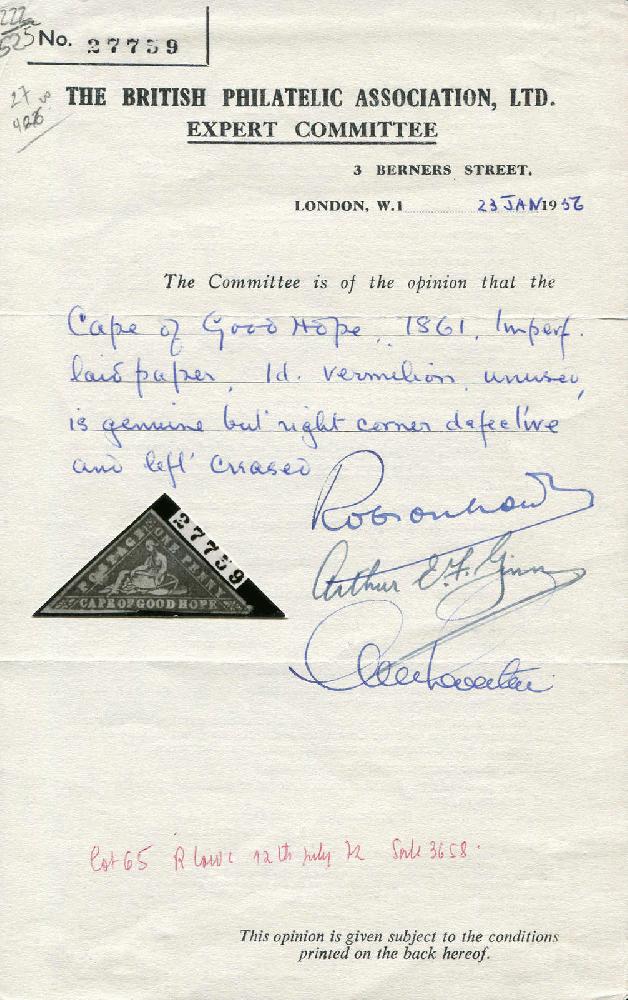 222
525
No. 27759
27
THE BRITISH PHILATELIC ASSOCIATION, LTD.
EXPERT COMMITTEE
3 BERNERS STREET,
LONDON, W.1 23 JAN 1956
The Committee is of the opinion that the
Cape of Good Hope, 1861, Imperf.
laid paper, 1d. vermilion, unused,
is genuine but right corner defective
and left creased
27759
POSTAGE
ONE PENNY
CAPE OF GOOD HOPE
Arthur E.F. Ginn
Lot 65 R Lowe 12th July 72 Sale 3658.
This opinion is given subject to the conditions
printed on the back hereof.